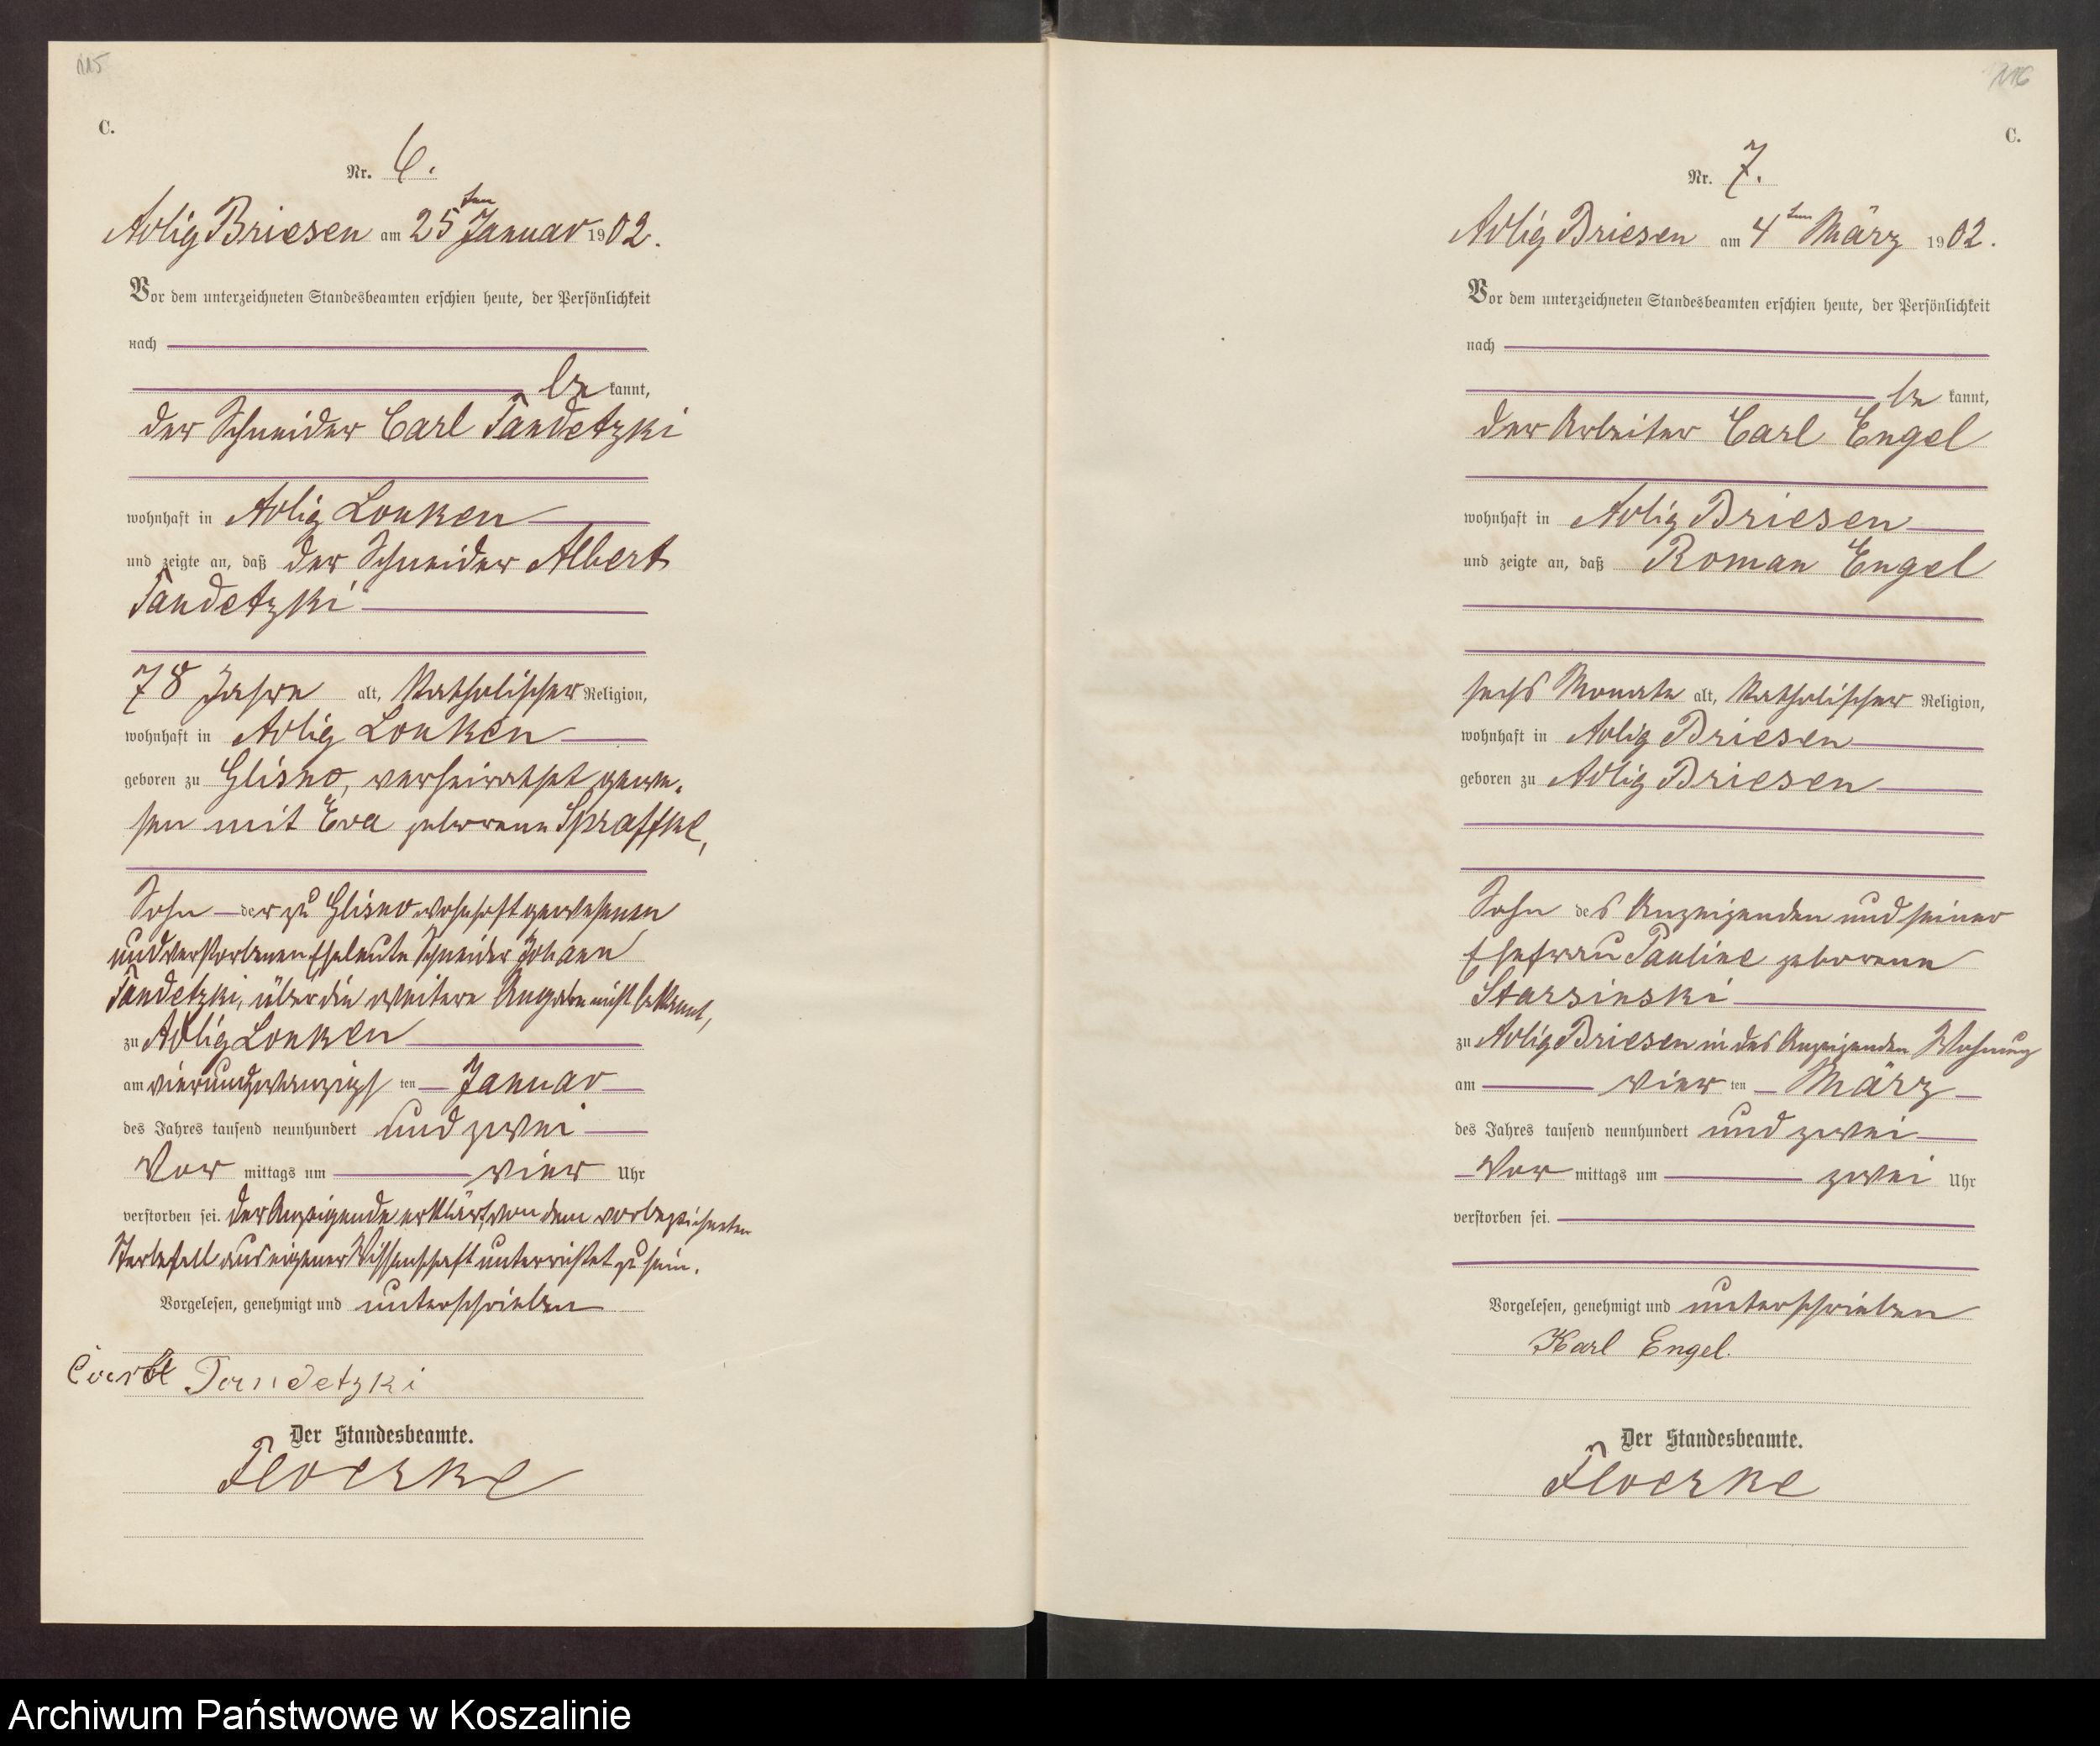 115
C.
Nr. 6.
Adlig Briesen am 25ten Januar 1902.
Vor dem unterzeichneten Standesbeamten erschien heute, der Persönlichkeit
nach
be kannt,
der Schneider Carl Tandetzki
wohnhaft in Adlig Lonken
und zeigte an, daß der Schneider Albert
Tandetzki
78 Jahre alt, katholischer Religion,
wohnhaft in Adlig Lonken
geboren zu Glisno, verheirathet gewe-
sen mit Eva geborene Spraffke,
Sohn der zu Glisno wohnhaft gewesenen
und verstorbenen Eheleute Schneider Johann
Tandetzki, über die weitere Angaben nicht bekannt,
zu Adlig Lonken
am vierundzwanzigs ten Januar
des Jahres tausend neunhundert und zwei
Vor mittags um vier Uhr
verstorben sei. Der Anzeigende erklärt, von dem vorbezeichneten
Sterbefall aus eigener Wissenschaft unterrichtet zu sein.
Vorgelesen, genehmigt und unterschrieben
Carl Tandetzki
Der Standesbeamte.
Floerke
116
C.
Nr. 7.
Adlig Briesen am 4ten März 1902.
Vor dem unterzeichneten Standesbeamten erschien heute, der Persönlichkeit
nach
be kannt,
der Arbeiter Carl Engel
wohnhaft in Adlig Briesen
und zeigte an, daß Roman Engel
sechs Monate alt, katholischer Religion,
wohnhaft in Adlig Briesen
geboren zu Adlig Briesen
Sohn des Anzeigenden und seiner
Ehefrau Pauline geborene
Starsinski
zu Adlig Briesen in des Anzeigenden Wohnung
am vier ten März
des Jahres tausend neunhundert und zwei
Vor mittags um zwei Uhr
verstorben sei.
Vorgelesen, genehmigt und unterschrieben
Karl Engel.
Der Standesbeamte.
Floerke
Archiwum Państwowe w Koszalinie